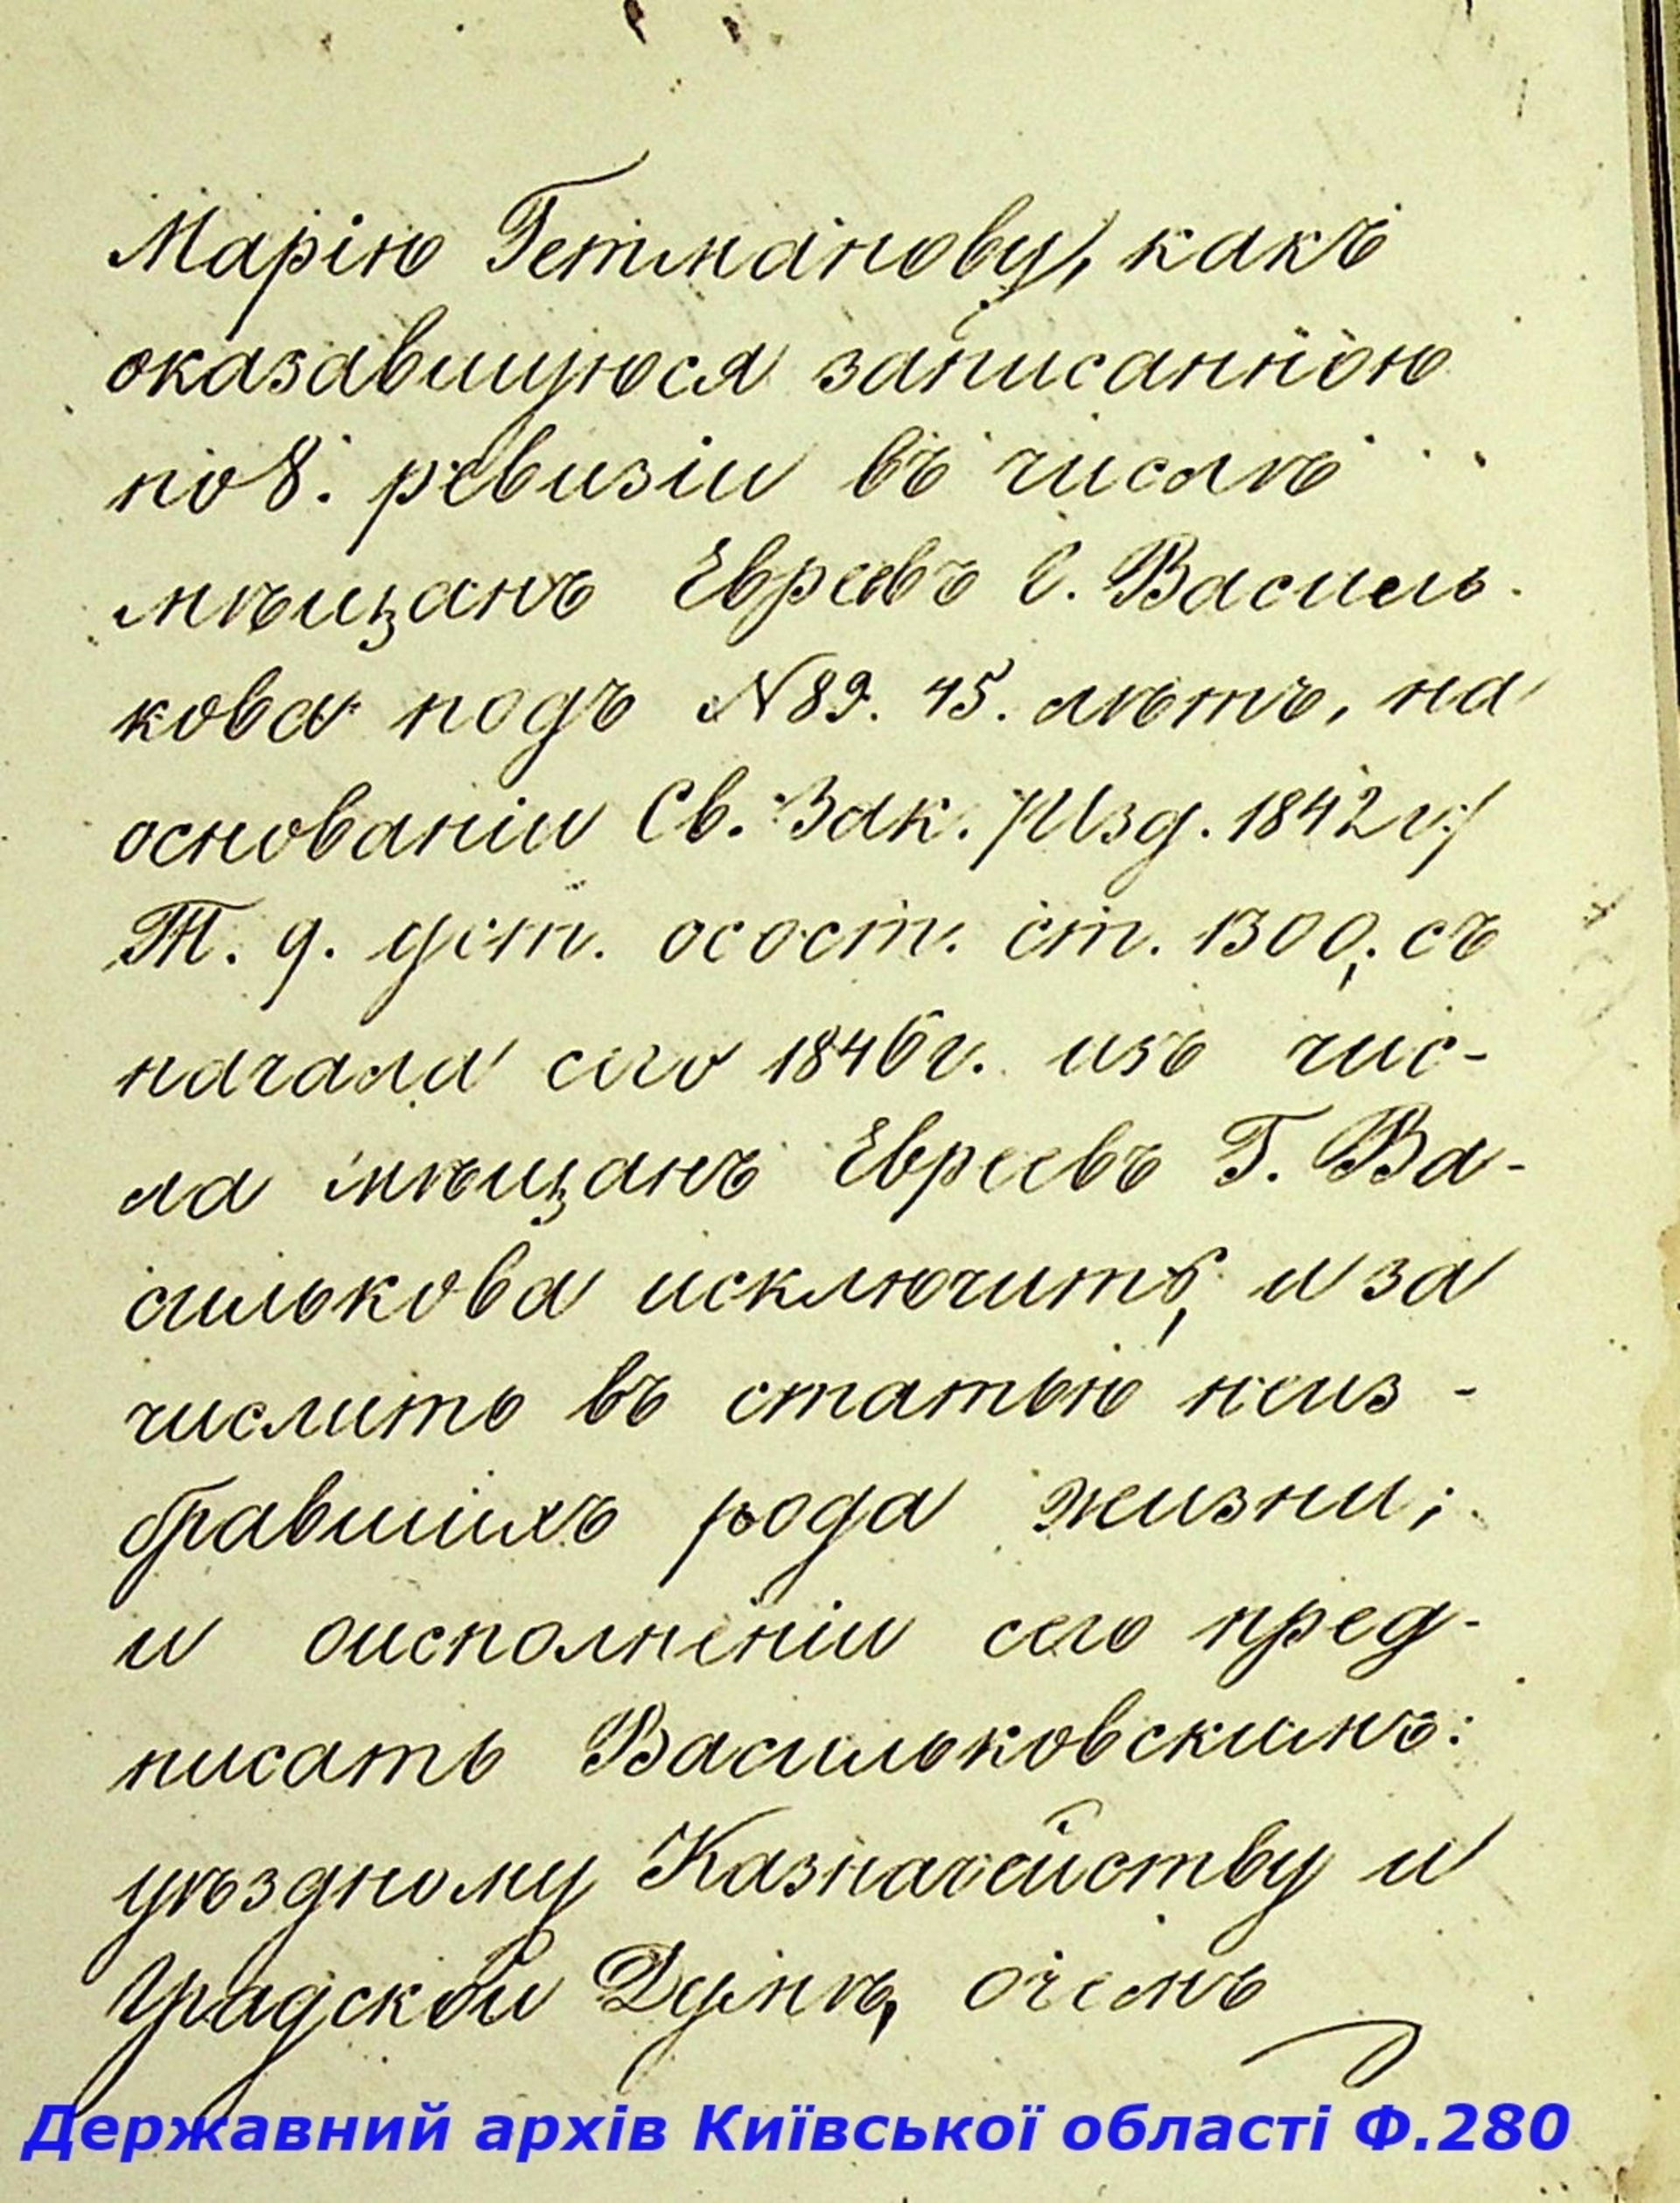 Марію Гетманову, какъ
оказавшуюся записанною
по 8. ревизіи въ числѣ
мѣщанъ Евреевъ Г. Василь-
кова подъ № 89. 45. лѣтъ, на
основаніи Св. Зак. /Изд. 1842 г./
Т. 9. уст. осост. ст. 1300, съ
начала сего 1846 г. изъ чис-
ла мѣщанъ Евреевъ Г. Ва-
силькова исключить, и за
числить въ статью неиз-
бравшихъ рода жизни;
и оисполненіи сего пред-
писать Васильковскимъ:
уѣздному Казначейству и
Градской Думѣ, очемъ
Державний архів Київської області Ф.280